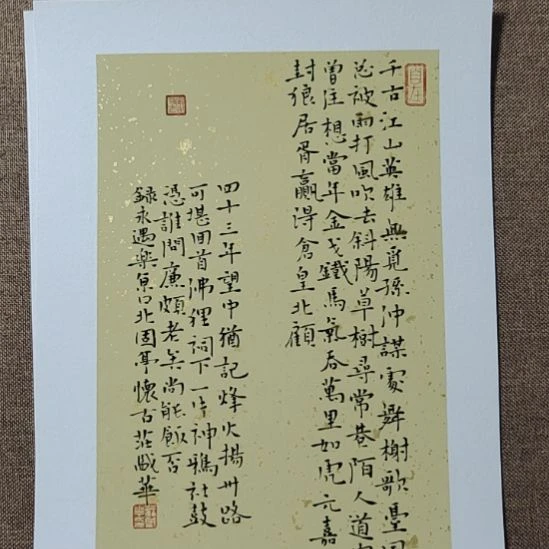 千古江山英雄無覓孫仲謀處舞榭歌臺
总被雨打風吹去斜陽草樹尋常巷陌人道
曾住想當年金戈鐵馬氣吞萬里如虎元嘉
封狼居胥贏得倉皇北顧
四十三年望中猶記烽火揚州路
可堪回首佛狸祠下一片神鴉社鼓
憑誰問廉頗老矣尚能飯否
録永遇樂京口北固亭懷古